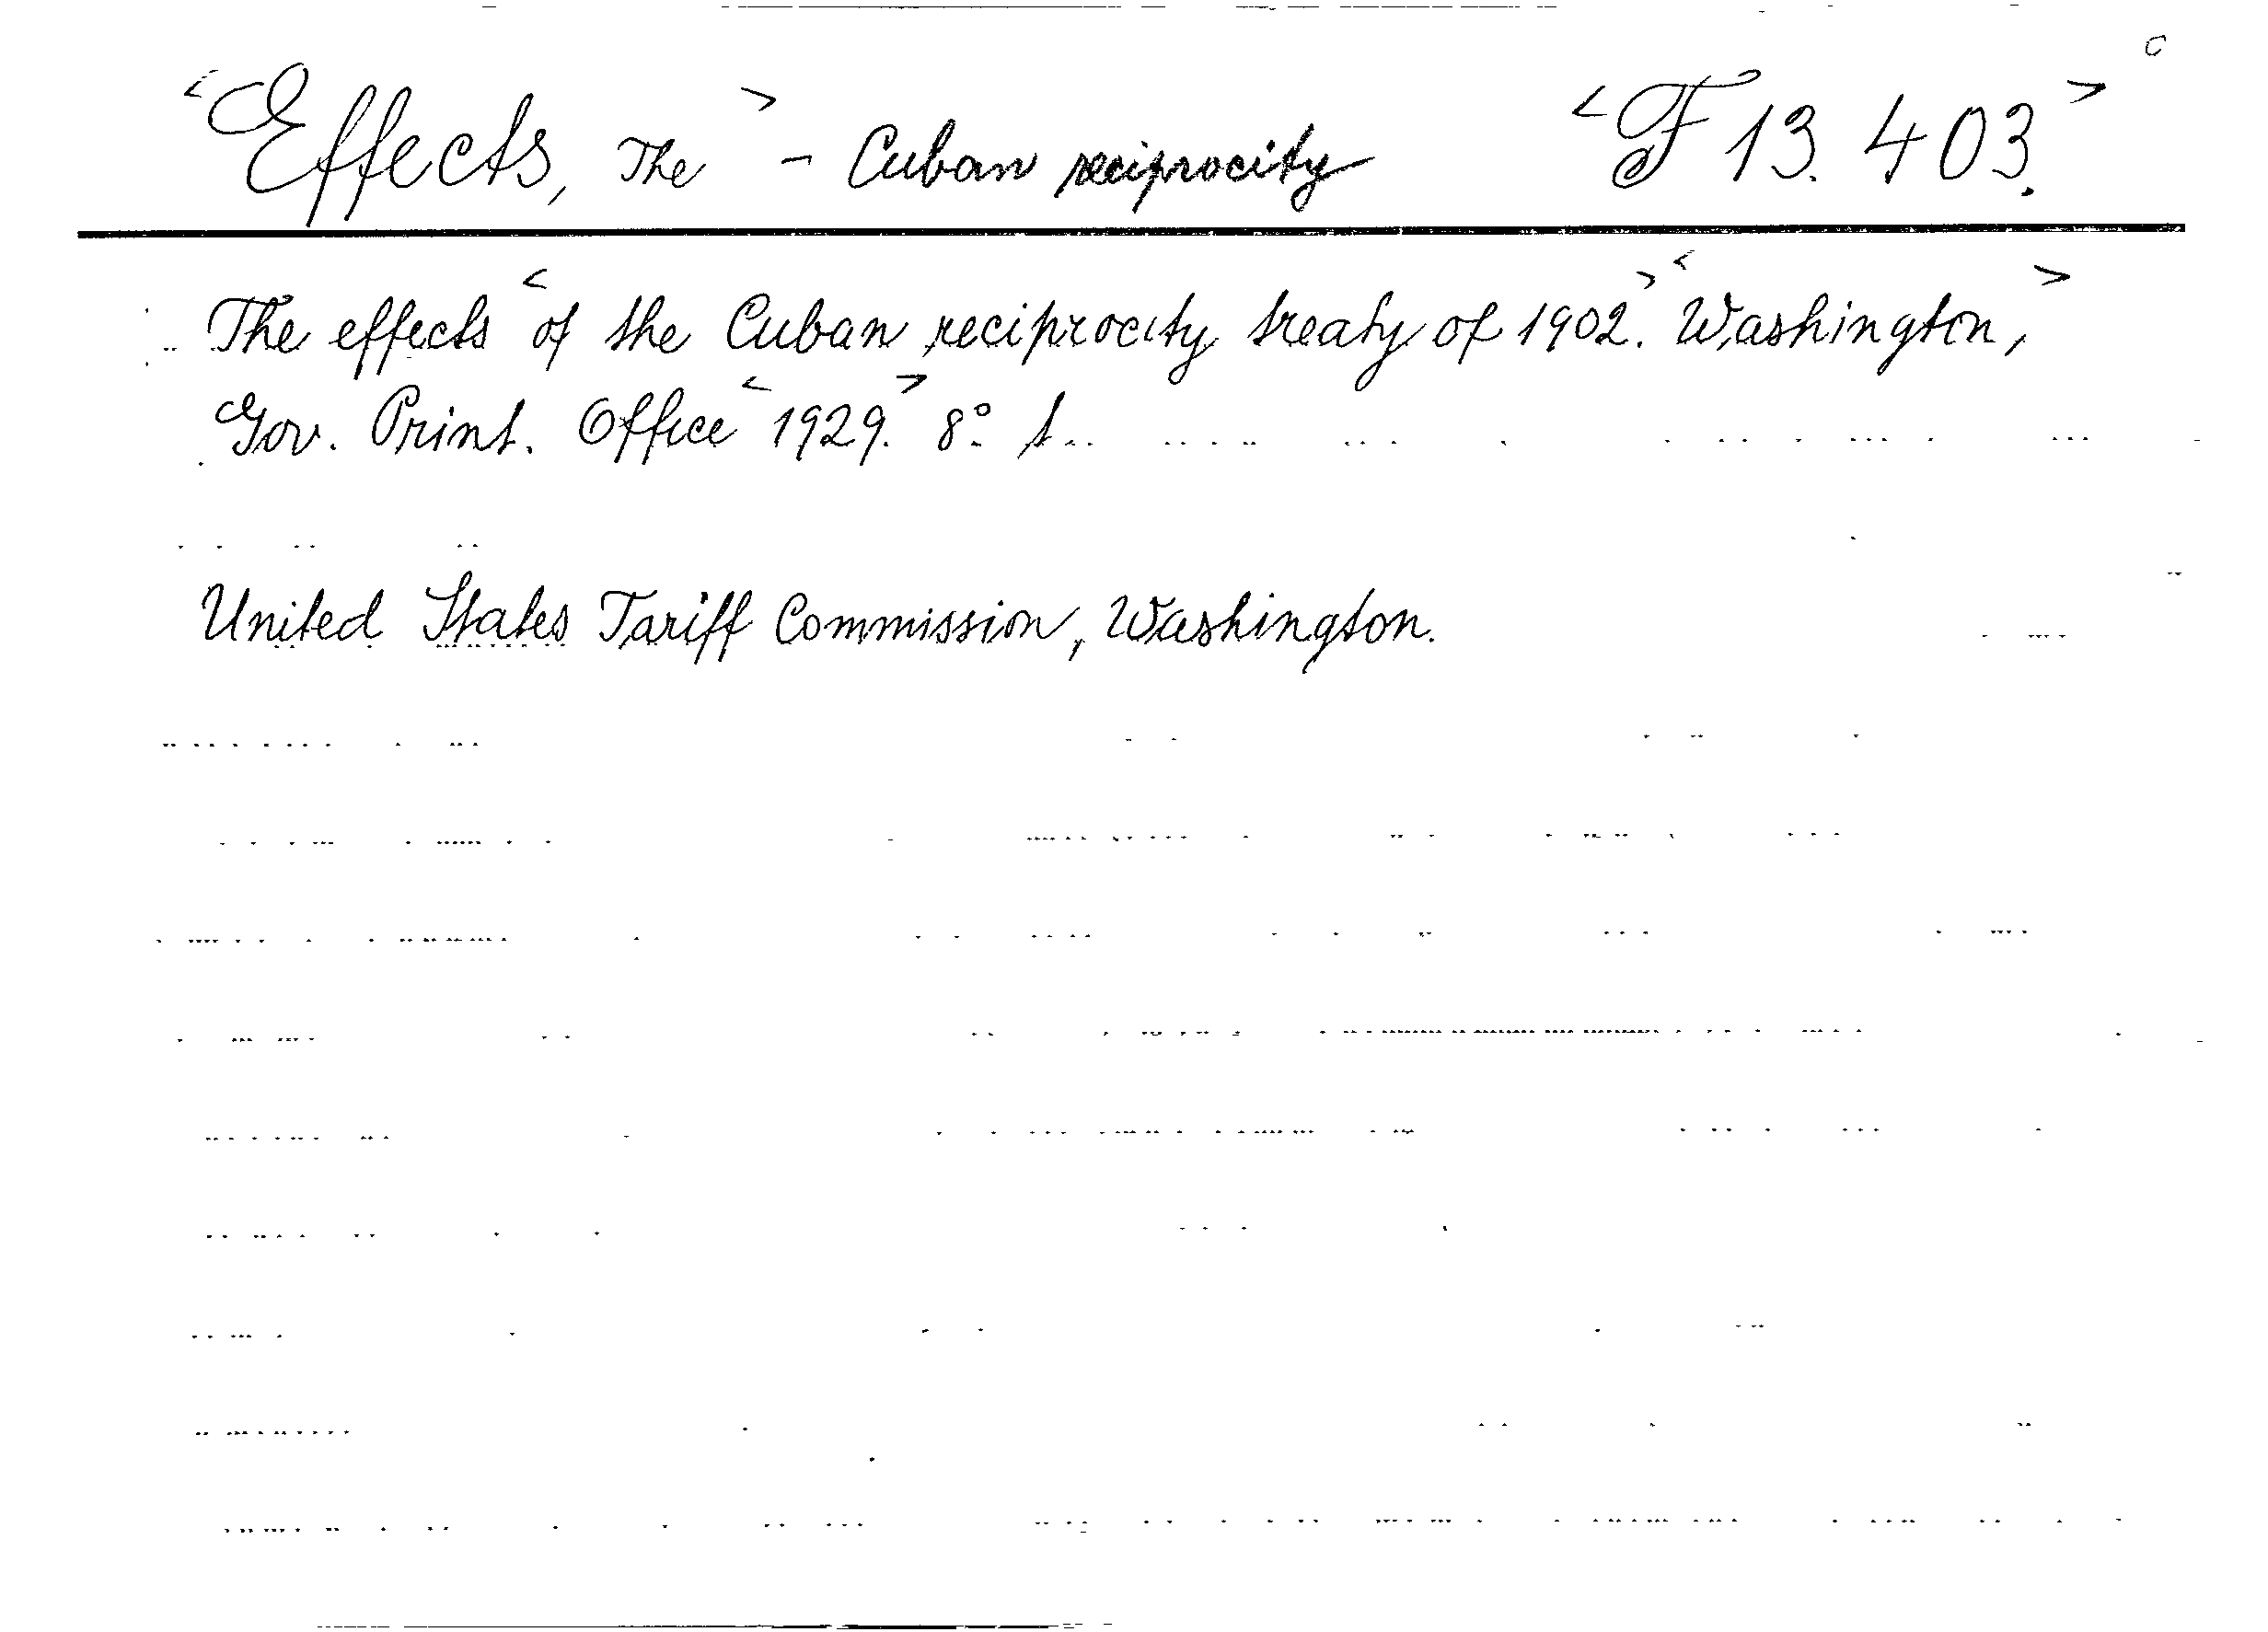 <Effects, The> - Cuban reciprocity <F 13.403.>
The effects <of the Cuban reciprocity treaty of 1902.> <Washington,>
Gov. Print. Office <1929.> 8°.
United States Tariff Commission, Washington.